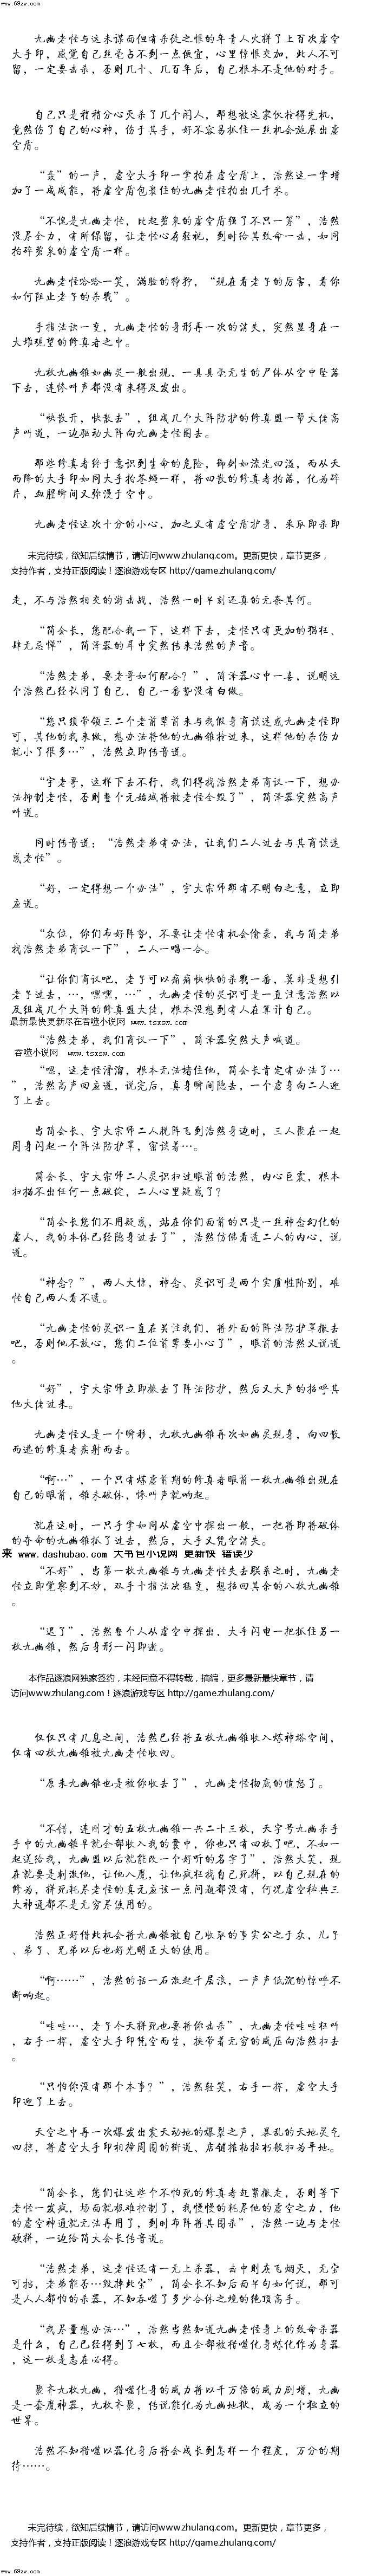 www.69zw.com
九幽老怪与这未谋面但有杀徒之恨的年青人火拼了上百次虚空
大手印，感觉自己丝毫占不到一点便宜，心里惊恨交加，此人不可
留，一定要击杀，否则几十、几百年后，自己根本不是他的对手。
自己只是稍稍分心灭杀了几个闲人，那想被这家伙抢得先机，
竟然伤了自己的心神，伤于其手，好不容易抓住一丝机会施展出虚
空盾。
“轰”的一声，虚空大手印一掌拍在虚空盾上，浩然这一掌增
加了一成威能，将虚空盾包裹住的九幽老怪拍出几千米。
“不愧是九幽老怪，比起剪泉的虚空盾强了不只一筹”，浩然
没尽全力，有所保留，让老怪心存轻视，到时给其致命一击，如同
拍碎剪泉的虚空盾一样。
九幽老怪哈哈一笑，满脸的狰狞，“现在看老子的厉害，看你
如何阻止老子的杀戮”。
手指法诀一变，九幽老怪的身形再一次的消失，突然显身在一
大堆观望的修真者之中。
九枚九幽锥如幽灵一般出现，一具具毫无生的尸体从空中坠落
下去，连惨叫声都没有来得及发出。
“快散开，快散去”，组成几个大阵防护的修真盟一帮大佬高
声叫道，一边驱动大阵向九幽老怪围去。
那些修真者终于意识到生命的危险，御剑如流光四溢，而从天
而降的大手印如同大手拍苍蝇一样，将四散的修真者拍落，化为碎
片，血腥瞬间又弥漫于空中。
九幽老怪这次十分的小心，加之又有虚空盾护身，来取即杀即
未完待续，欲知后续情节，请访问www.zhulang.com。更新更快，章节更多，
支持作者，支持正版阅读！逐浪游戏专区 http://game.zhulang.com/
走，不与浩然相交的游击战，浩然一时半刻还真的无奈其何。
“简会长，您配合我一下，这样下去，老怪只有更加的猖狂、
肆无忌惮”，简泽器的耳中突然传来浩然的声音。
“浩然老弟，要老哥如何配合？”，简泽器心中一喜，说明这
个浩然已经认同了自己，自己一番努没有白做。
“您只须带领三二个老前辈前来与我假身商谈迷惑九幽老怪即
可，其他的我来做，想办法将他的九幽锥抢过来，这样他的杀伤力
就小了很多…”，浩然立即传音道。
“宇老哥，这样下去不行，我们得我浩然老弟商议一下，想办
法抑制老怪，否则整个无始城将被老怪全毁了”，简泽器突然高声
叫道。
同时传音道：“浩然老弟有办法，让我们二人过去与其商谈迷
惑老怪”。
“好，一定得想一个办法”，宇大宗师那有不明白之意，立即
应道。
“众位，你们布好阵势，不要让老怪有机会偷袭，我与简老弟
我浩然老弟商议一下”，二人一唱一合。
“让你们商议吧，老子可以痛痛快快的杀戮一番，莫非是想引
老子过去，…，嘿嘿，…”，九幽老怪的灵识可是一直注意浩然以
及组成几个大阵的修真盟大佬，根本没想到有人在算计自己。
最新最快更新尽在吞噬小说网 www.tsxsw.com
“浩然老弟，我们商议一下”，简泽器突然大声喊道。
吞噬小说网 www.tsxsw.com
“嗯，这老怪滑溜，根本无法堵住他，简会长肯定有办法了…
”，浩然高声回应道，说完后，真身瞬间隐去，一个虚身向二人迎
了上去。
当简会长、宇大宗师二人脱阵飞到浩然身边时，三人聚在一起
周身闪起一个阵法防护罩，密谈着…。
简会长、宇大宗师二人灵识扫过眼前的浩然，内心巨震，根本
扫描不出任何一点破绽，二人心里疑惑了？
“简会长您们不用疑惑，站在你们面前的只是一丝神念幻化的
虚人，我的本体已经隐身过去了”，浩然仿佛看透二人的内心，说
道。
“神念？”，两人大惊，神念、灵识可是两个实质性阶别，难
怪自己两人看不透。
“九幽老怪的灵识一直在关注我们，将外面的阵法防护罩撤去
吧，否则他不放心，您们二位前辈要小心了”，眼前的浩然又说道
。
“好”，宇大宗师立即撤去了阵法防护，然后又大声的招呼其
他大佬过来。
九幽老怪又是一个瞬移，九枚九幽锥再次如幽灵现身，向四散
而逃的修真者疾射而去。
“啊…”，一个只有炼虚前期的修真者眼前一枚九幽锥出现在
自己的眼前，锥未破体，惨叫声就响起。
就在这时，一只手掌如同从虚空中探出一般，一把将即将破体
的夺命的九幽锥抓了过去，然后，大手又凭空消失。
来 www.dashubao.com 大书包小说网 更新快 错误少
“不好”，当第一枚九幽锥与九幽老怪失去联系之时，九幽老
怪立即觉察到不妙，双手十指法决猛变，想招回其余的八枚九幽锥
。
“迟了”，浩然整个人从虚空中探出，大手闪电一把抓住另一
枚九幽锥，然后身形一闪即逝。
本作品逐浪网独家签约，未经同意不得转载，摘编，更多最新最快章节，请
访问www.zhulang.com！逐浪游戏专区 http://game.zhulang.com/
仅仅只有几息之间，浩然已经将五枚九幽锥收入炼神塔空间，
仅有四枚九幽锥被九幽老怪收回。
“原来九幽锥也是被你收去了”，九幽老怪彻底的愤怒了。
“不错，连刚才的五枚九幽锥一共二十三枚，天字号九幽杀手
手中的九幽锥早就全部收入我的囊中，你也只有四枚了吧，不如一
起送给我，九幽盟以后就能改一个好听的名字了”，浩然大笑，现
在就要是刺激他，让他入魔，让他疯狂找自己死拼，以自己现在的
修为，拼死耗尽老怪的真元应该一点问题都没有，何况虚空秘典三
大神通都不是无穷尽使用的。
浩然正好借此机会将九幽锥被自己收取的事实公之于众，儿子
、弟子、兄弟以后也好光明正大的使用。
“啊……”，浩然的话一石激起千层浪，一声声低沉的惊呼不
断响起。
“哇哇…，老子今天拼死也要将你击杀”，九幽老怪哇哇狂叫
，右手一挥，虚空大手印凭空而生，挟带着无穷的威压向浩然扫去
。
“只怕你没有那个本事？”，浩然轻笑，右手一挥，虚空大手
印迎了上去。
天空之中再一次爆发出震天动地的爆裂之声，暴乱的天地灵气
四掠，将虚空大手印相撞周围的街道、店铺摧枯拉朽般扫为平地。
“简会长，您们让这些个不怕死的修真者赶紧撤走，否则等下
老怪一发疯，场面就极难控制了，我慢慢的耗尽他的虚空之力，他
的虚空神通就无法再用了，到时布阵将其围杀”，浩然一边与老怪
硬拼，一边给简大会长传音道。
“浩然老弟，这老怪还有一无上杀器，击中则灰飞烟灭，无宝
可挡，老弟能否…毁掉此宝”，简会长不知后面半句如何说，那可
是人人都怕的杀器，不知吞噬了多少合体之境的绝顶高手。
“我尽量想办法…”，浩然当然知道九幽老怪身上的致命杀器
是什么，自己已经得到了七枚，而且全部被猎噬化身炼化作为身器
，这一枚是志在必得。
聚齐九枚九幽，猎噬化身的威力将以千万倍的威力剧增，九幽
是一套魔神器，九枚齐聚，传说能化为九幽地狱，成为一个独立的
世界。
浩然不知猎噬以器化身后将会成长到怎样一个程度，万分的期
待……。
未完待续，欲知后续情节，请访问www.zhulang.com。更新更快，章节更多，
支持作者，支持正版阅读！逐浪游戏专区 http://game.zhulang.com/
www.69zw.com